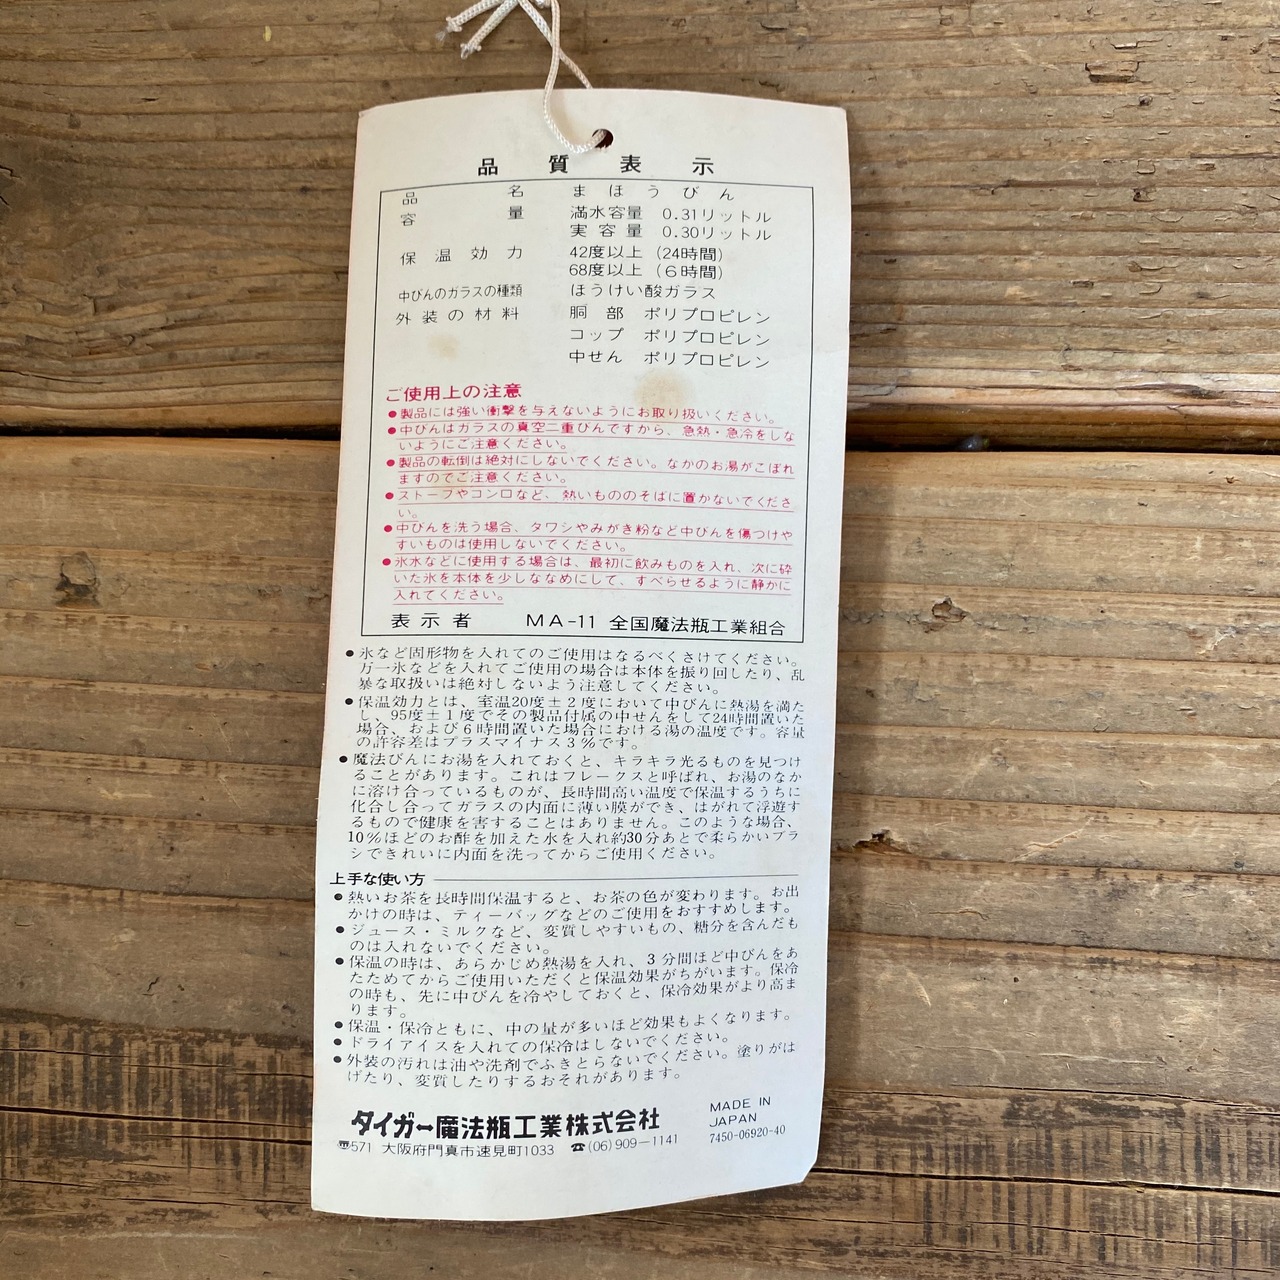 品質表示
品名 まほうびん
容量 満水容量 0.31リットル
実容量 0.30リットル
保温効力 42度以上(24時間)
68度以上(6時間)
中びんのガラスの種類 ほうけい酸ガラス
外装の材料 胴部 ポリプロピレン
コップ ポリプロピレン
中せん ポリプロピレン
ご使用上の注意
●製品には強い衝撃を与えないようにお取り扱いください。
●中びんはガラスの真空二重びんですから、急熱・急冷をしな
いようにご注意ください。
●製品の転倒は絶対にしないでください。なかのお湯がこぼれ
ますのでご注意ください。
●ストーブやコンロなど、熱いもののそばに置かないでくださ
い。
●中びんを洗う場合、タワシやみがき粉など中びんを傷つけや
すいものは使用しないでください。
●氷水などに使用する場合は、最初に飲みものを入れ、次に砕
いた氷を本体を少しななめにして、すべらせるように静かに
入れてください。
表示者 MA-11 全国魔法瓶工業組合
●氷など固形物を入れてのご使用はなるべくさけてください。
万一氷などを入れてご使用の場合は本体を振り回したり、乱
暴な取扱いは絶対しないよう注意してください。
●保温効力とは、室温20度±2度において中びんに熱湯を満た
し、95度±1度でその製品付属の中せんをして24時間置いた
場合、および6時間置いた場合における湯の温度です。容量
の許容差はプラスマイナス3%です。
●魔法びんにお湯を入れておくと、キラキラ光るものを見つけ
ることがあります。これはフレークスと呼ばれ、お湯のなか
に溶け合っているものが、長時間高い温度で保温するうちに
化合し合ってガラスの内面に薄い膜ができ、はがれて浮遊す
るもので健康を害することはありません。このような場合、
10%ほどのお酢を加えた水を入れ約30分あとで柔らかいブラ
シできれいに内面を洗ってからご使用ください。
上手な使い方
●熱いお茶を長時間保温すると、お茶の色が変わります。お出
かけの時は、ティーバッグなどのご使用をおすすめします。
●ジュース・ミルクなど、変質しやすいもの、糖分を含んだも
のは入れないでください。
●保温の時は、あらかじめ熱湯を入れ、3分間ほど中びんをあ
たためてからご使用いただくと保温効果がちがいます。保冷
の時も、先に中びんを冷やしておくと、保冷効果がより高ま
ります。
●保温・保冷ともに、中の量が多いほど効果もよくなります。
●ドライアイスを入れての保冷はしないでください。
●外装の汚れは油や洗剤でふきとらないでください。塗りがは
げたり、変質したりするおそれがあります。
タイガー魔法瓶工業株式会社
〠571 大阪府門真市速見町1033 ☎(06)909-1141
MADE IN
JAPAN
7450-06920-40